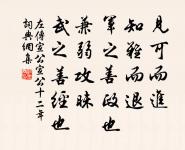 見可而進
知難而退
軍之善政也
兼弱攻昧
武之善經也
左傳宣公宣公十二年
詞典網集